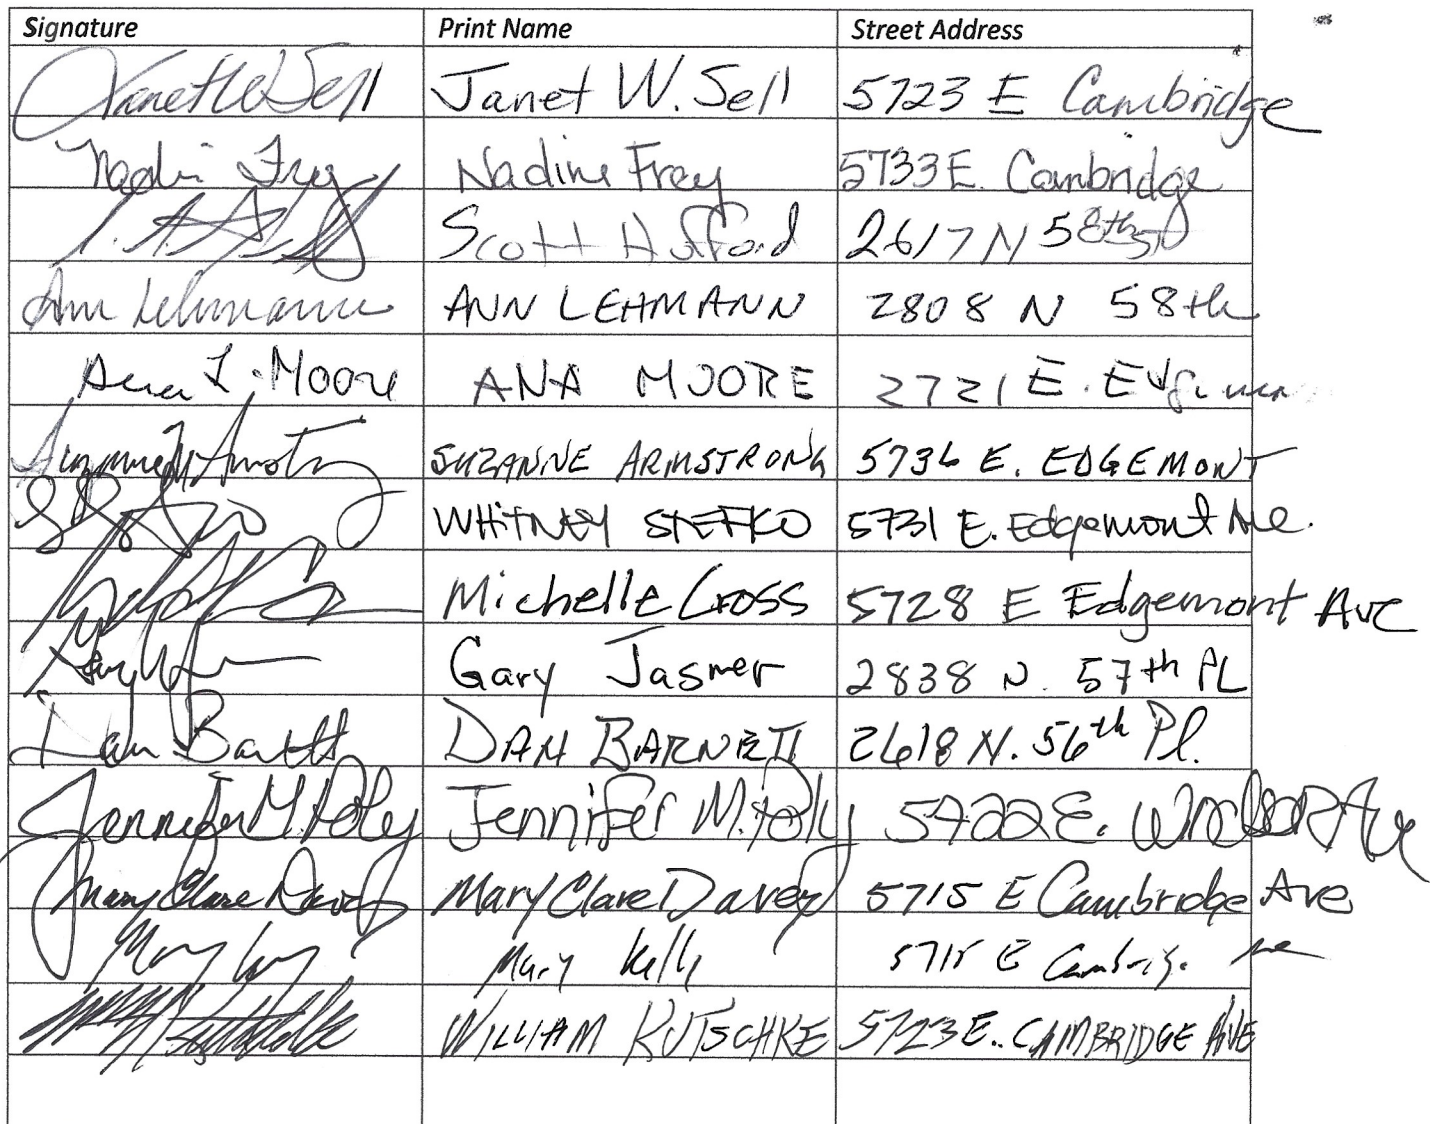 Signature Print Name Street Address
Janet W Sell Janet W. Sell 5723 E Cambridge
Nadin Frey Nadine Frey 5733 E. Cambridge
Scott Hufford 2617 N 58th St
Ann Lehmann ANN LEHMANN 2808 N 58th
Ana L. Moore ANA MOORE 2721 E.
Suzanne Armstrong SUZANNE ARMSTRONG 5736 E. EDGEMONT
WHITNEY STEFKO 5731 E. Edgemont Ave.
Michelle Cross 5728 E Edgemont Ave
Gary Jasmer 2838 N. 57th PL
Dan Barnett DAN BARNETT 2618 N. 56th Pl.
Jennifer M. Poly Jennifer M. Poly 5722 E. Windsor Ave
Mary Clare Davey Mary Clare Davey 5715 E Cambridge Ave
Mary Kelly 5715 E Ave
WILLIAM KUTSCHKE 5723 E. CAMBRIDGE AVE